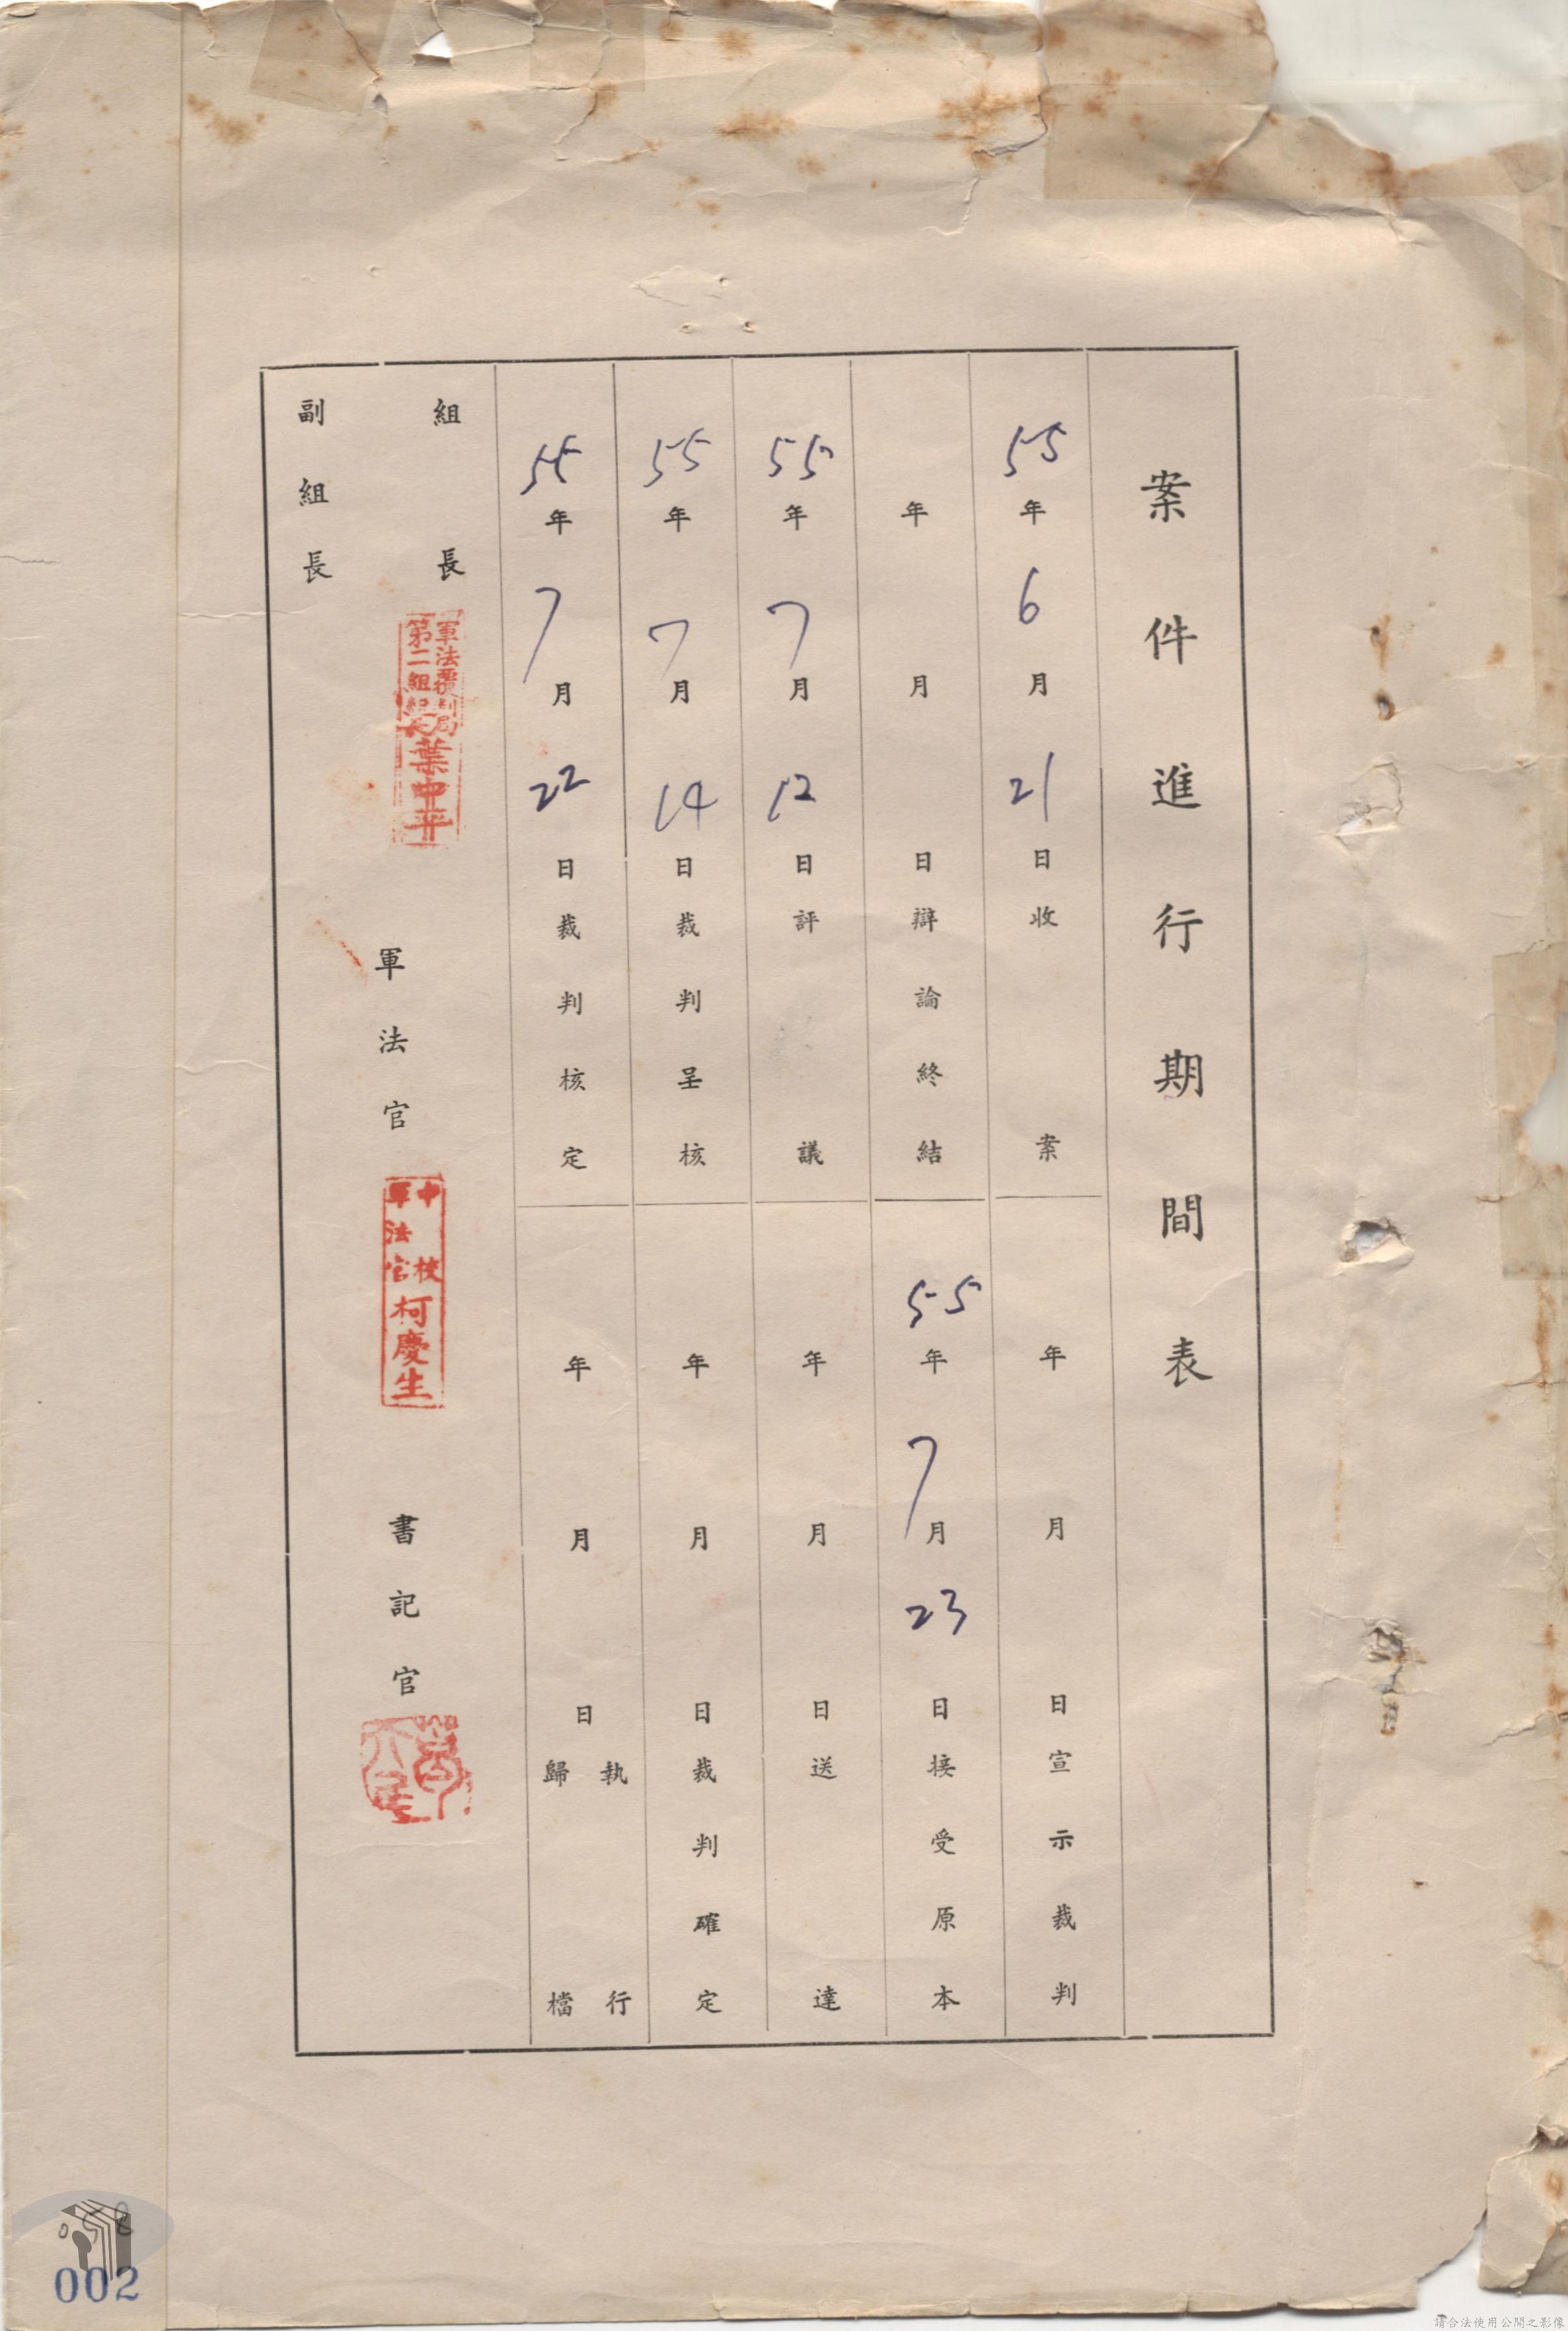 案件進行期間表
55年6月21日收案
年月日宣示裁判
年月日辯論終結
55年7月23日接受原本
55年7月12日評議
年月日送達
55年7月14日裁判呈核
年月日裁判確定
55年7月22日裁判核定
年月日執行
歸檔
組長
軍法覆判局
第二組組長
葉中平
副組長
軍法官
中校
軍法官
柯慶生
書記官
002
請合法使用公開之影像